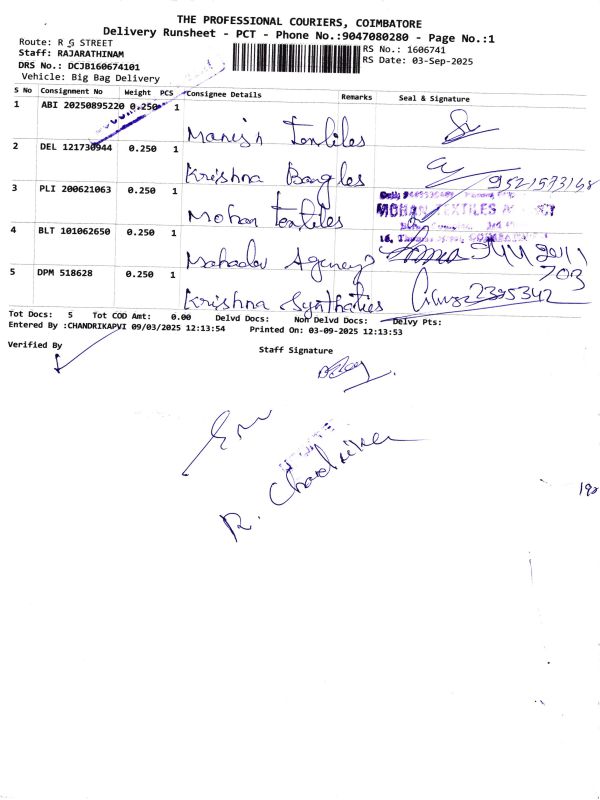 THE PROFESSIONAL COURIERS, COIMBATORE
Delivery Runsheet - PCT - Phone No.:9047080280 - Page No.:1
Route: R G STREET
Staff: RAJARATHINAM
DRS No.: DCJB160674101
Vehicle: Big Bag Delivery
RS No.: 1606741
RS Date: 03-Sep-2025
S No Consignment No Weight PCS Consignee Details Remarks Seal & Signature
1 ABI 20250895220 0.250 1 Manish Textiles
2 DEL 121730944 0.250 1 Krishna Bangles
3 PLI 200621063 0.250 1 Mohan Textiles MOHAN TEXTILES
4 BLT 101062650 0.250 1 Mahadav Agency
5 DPM 518628 0.250 1 Krishna Synthatics
Tot Docs: 5 Tot COD Amt: 0.00 Delvd Docs: Non Delvd Docs: Delvy Pts:
Entered By :CHANDRIKAPVI 09/03/2025 12:13:54 Printed On: 03-09-2025 12:13:53
Verified By
Staff Signature